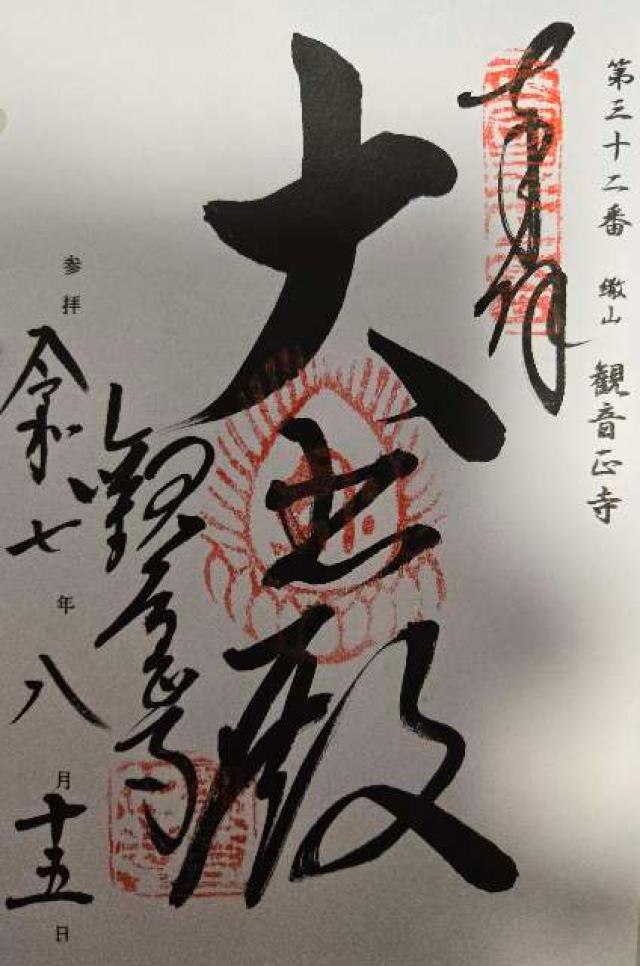 第三十二番 繖山 観音正寺
奉拝
大悲殿
観音正寺
参拝 令和七年八月十五日